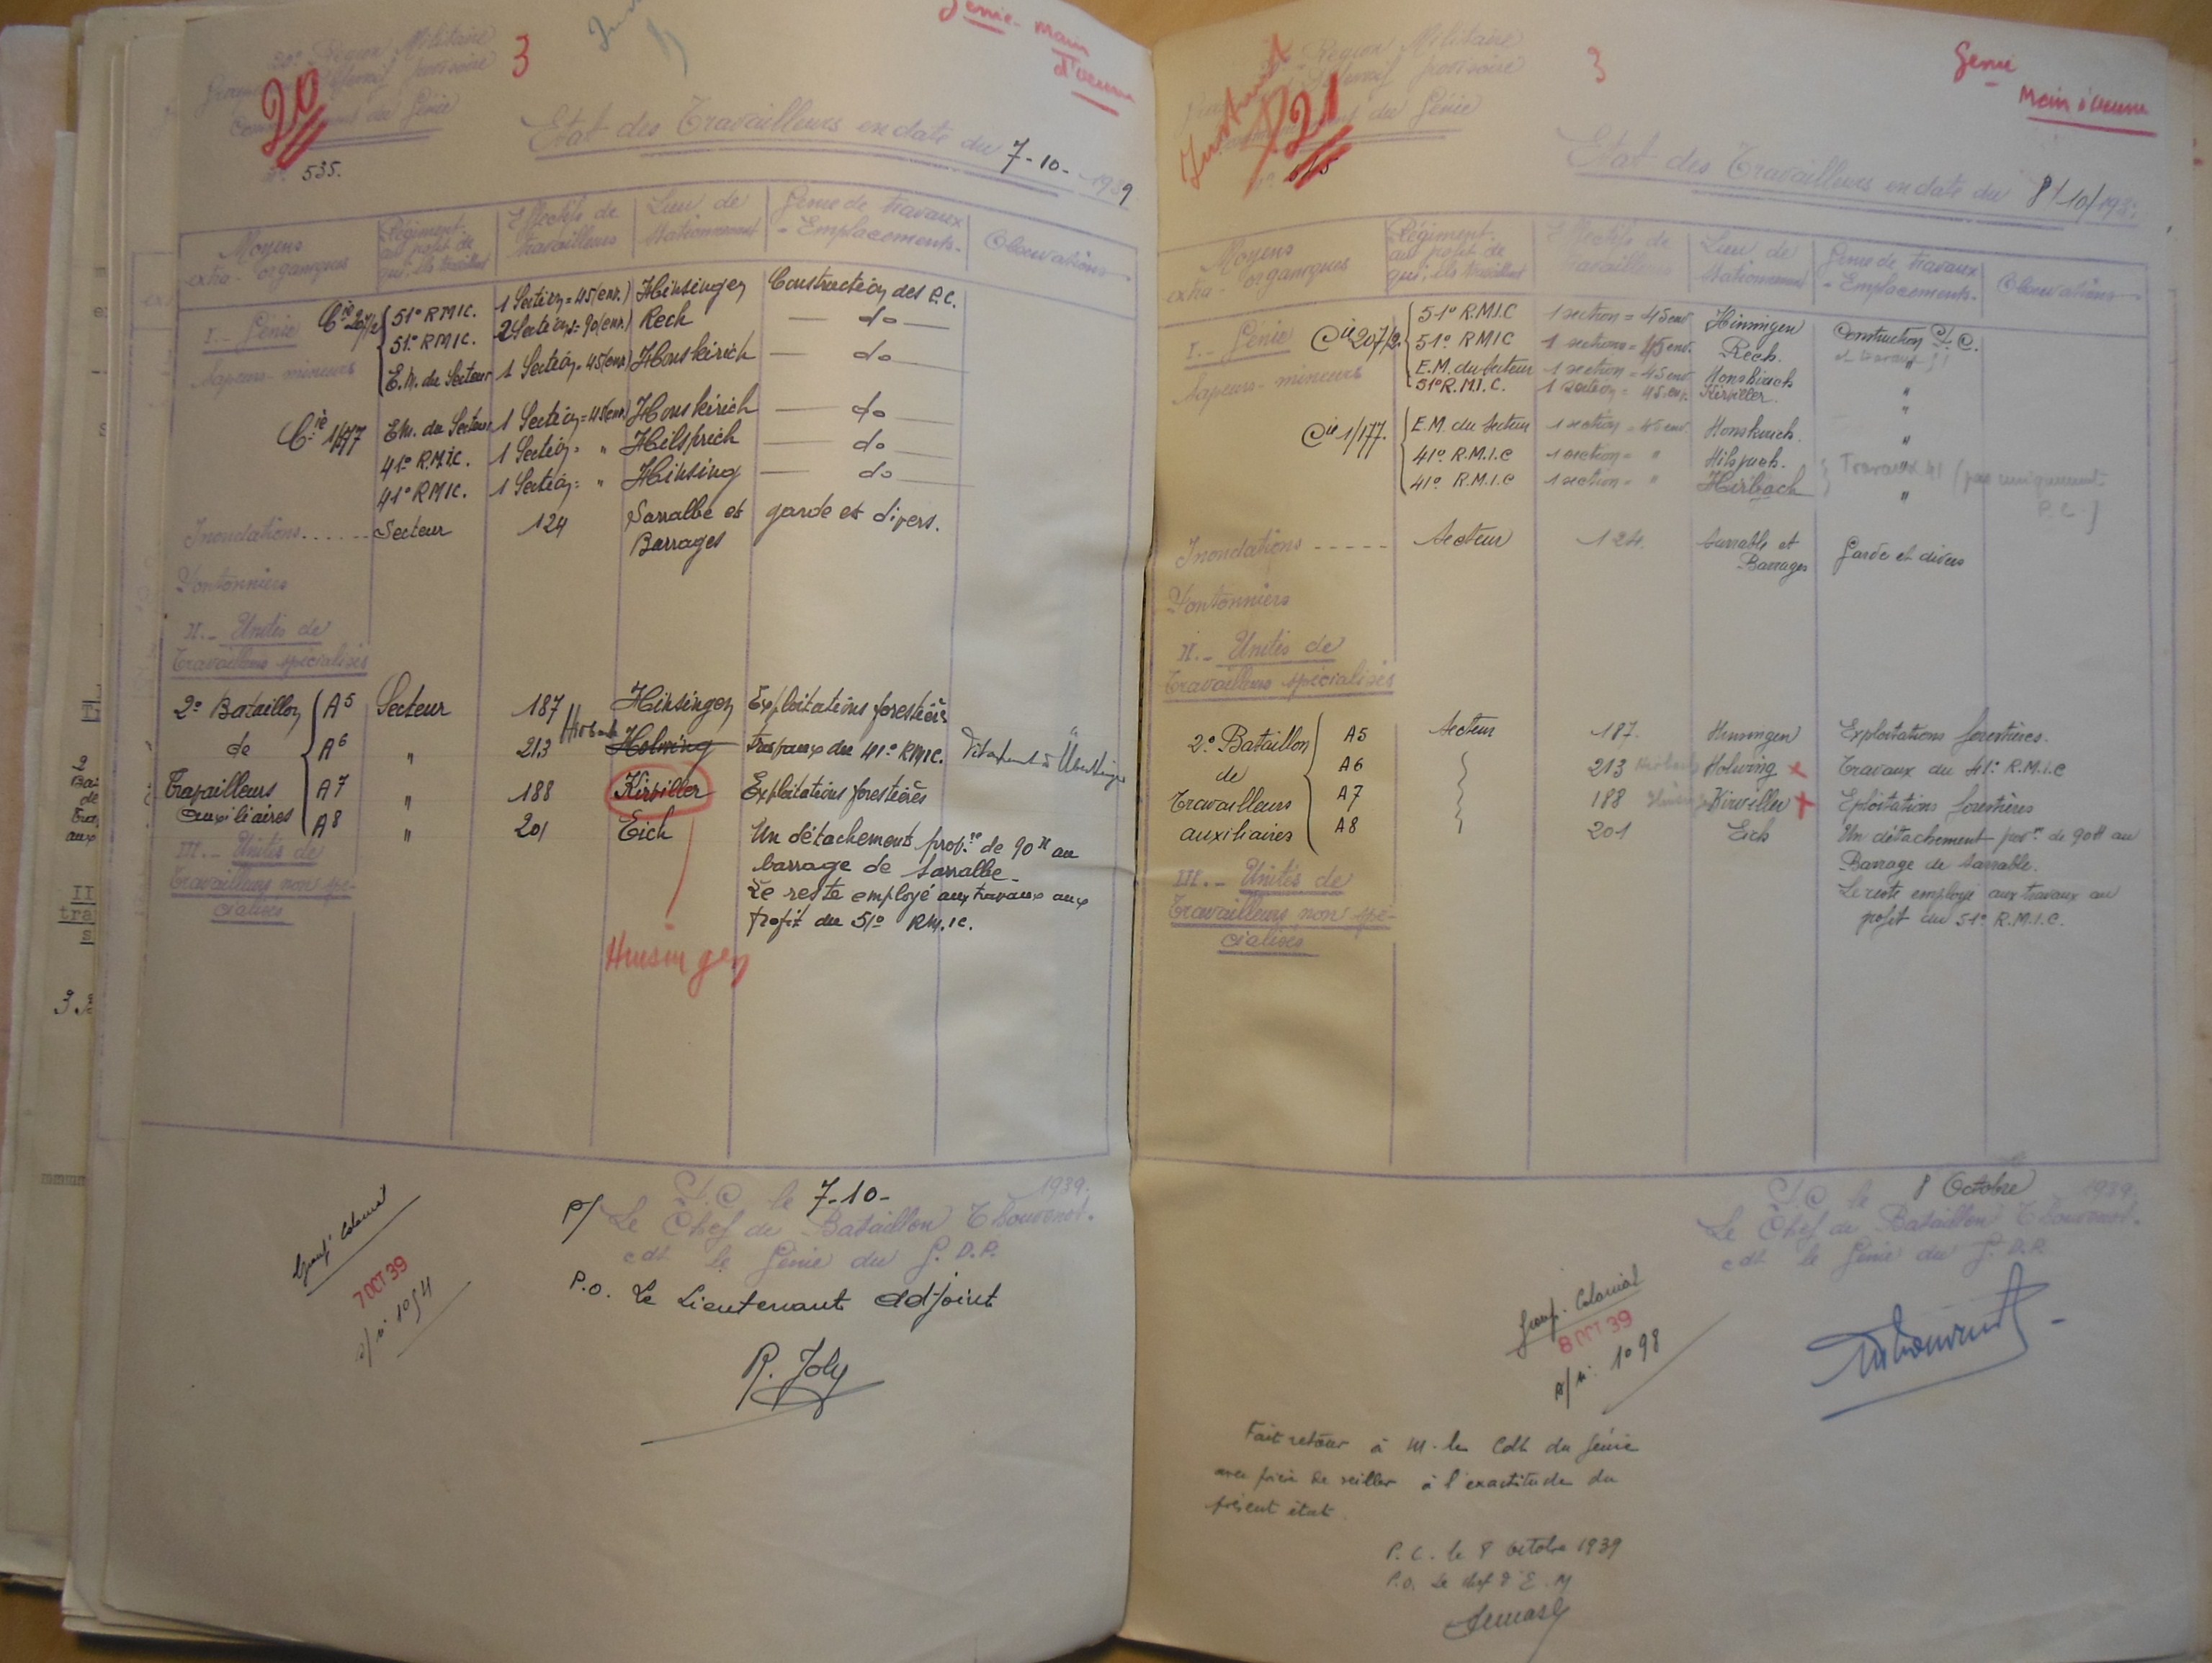 20e Région Militaire
Groupement Défensif provisoire
Commandement du Génie
20
3
Génie - Main
d'œuvre
N° 535.
Etat des Travailleurs en date du 7-10-1939
Moyens extra-organiques
Régiment au profit de qui ils travaillent
Effectifs de travailleurs
Lieu de stationnement
Genre de travaux - Emplacements -
Observations
I.- Génie Cie 207/2 51° RMIC. 1 Section = 45(env.) Hinsingen Construction des P.C.
Sapeurs-mineurs 51° RMIC. 2 Sections = 90(env.) Rech — do —
E.M. du Secteur 1 Section = 45(env.) Honskirich — do —
Cie 1/177 E.M. du Secteur 1 Section = 45(env.) Honskirich — do —
41° R.M.I.C. 1 Section = " Hilsprich — do —
41° RMIC. 1 Section = " Hinsing — do —
Inondations...... Secteur 124 Sarralbe et Barrages garde et divers.
Pontonniers
II.- Unités de
Travailleurs spécialisés
2° Bataillon A5 Secteur 187 Hinsingen Exploitations forestières
de A6 " 213 Hirbach Holwing Travaux du 41° RMIC.
Travailleurs A7 " 188 Kirviller Exploitations forestières
auxiliaires A8 " 201 Eich Un détachement prov.re de 90 H au
barrage de Sarralbe.
Le reste employé aux travaux aux
profit du 51° RM.IC.
III.- Unités de
Travailleurs non spé-
cialisés
Hinsingen
P.C. le 7-10- 1939.
P/ Le Chef de Bataillon Thouvenot.
cdt le Génie du G.D.P.
P.O. Le Lieutenant adjoint
R. Joly
Groupt Colonial
7 OCT 39
A/ n° 1094
Région Militaire
Défensif provisoire
du Génie
21
3
Génie
Main d'œuvre
Etat des Travailleurs en date du 8/10/193
Moyens extra-organiques
Régiment au profit de qui ils travaillent
Effectifs de travailleurs
Lieu de stationnement
Genre de travaux - Emplacements -
Observations
I.- Génie Cie 207/2. 51° R.M.I.C 1 section = 45 env. Hinsingen Construction P.C.
Sapeurs-mineurs 51° RMIC 1 sections = 45 env. Rech.
E.M. du Secteur 1 section = 45 env. Honskirich "
51° R.M.I.C. 1 section = 45 env. Kirviller. "
Cie 1/177. E.M. du Secteur 1 section = 45 env. Honskirich. "
41° R.M.I.C 1 section = " Hilsprich. Travaux 41 (pas uniquement
41° R.M.I.C 1 section = " Hirbach " P.C.)
Inondations ----- Secteur 124. Sarralbe et Barrages Garde et divers
Pontonniers
II.- Unités de
Travailleurs spécialisés
2° Bataillon A5 Secteur 187. Hinsingen Exploitations forestières.
de A6 213 Hirbach Holwing x Travaux du 41° R.M.I.C
Travailleurs A7 188 Kirviller x Exploitations forestières
auxiliaires A8 201 Eich Un détachement prov.re de 90 H au
Barrage de Sarralbe.
Le reste employé aux travaux au
profit du 51° R.M.I.C.
III.- Unités de
Travailleurs non spé-
cialisés
P.C le 8 Octobre 1939.
Le Chef de Bataillon Thouvenot.
cdt le Génie du G.D.P.
Thouvenot
Groupt Colonial
8 OCT 39
A/ n° 1098
Fait retour à M. le Cdt du Génie
avec prière de veiller à l'exactitude du
présent état.
P.C. le 8 Octobre 1939
P.O. Le Chef d'E.M